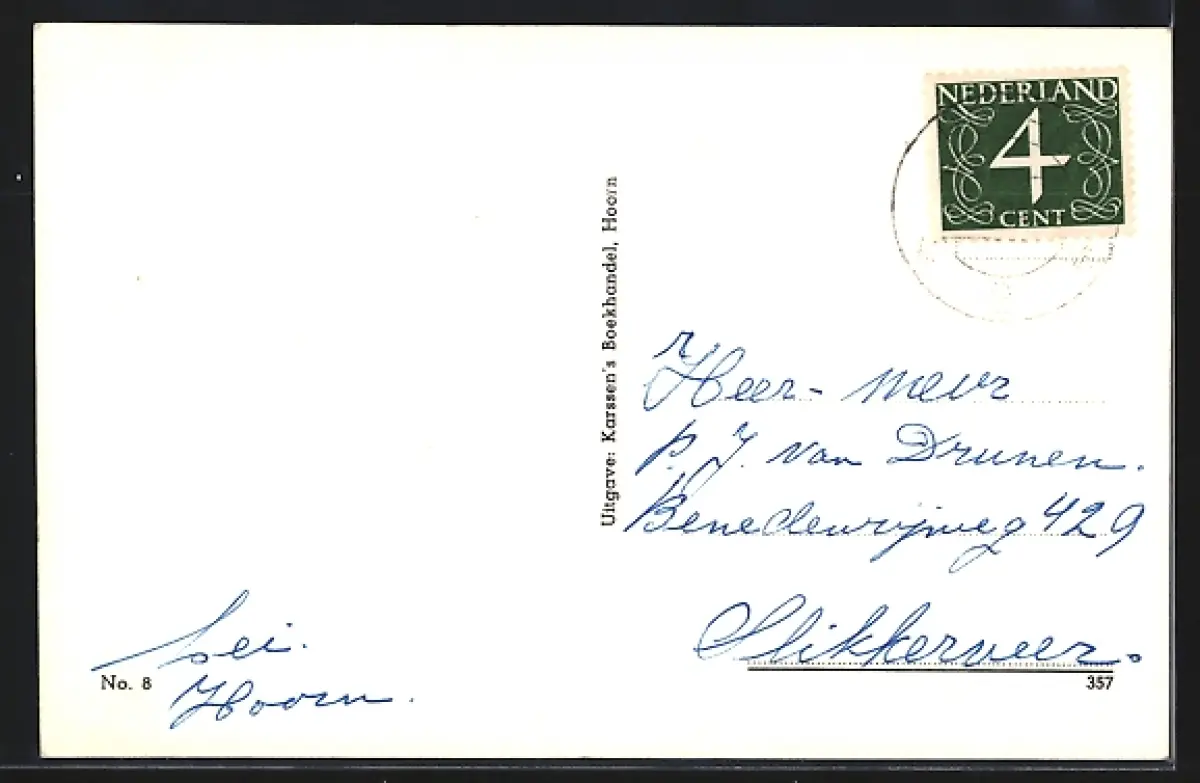 NEDERLAND
4
CENT
Uitgave: Karssen's Boekhandel, Hoorn
Heer - Mevr
P. J. van Drunen.
Benedenrijweg 429
Slikkerveer.
357
Hoorn.
No. 8